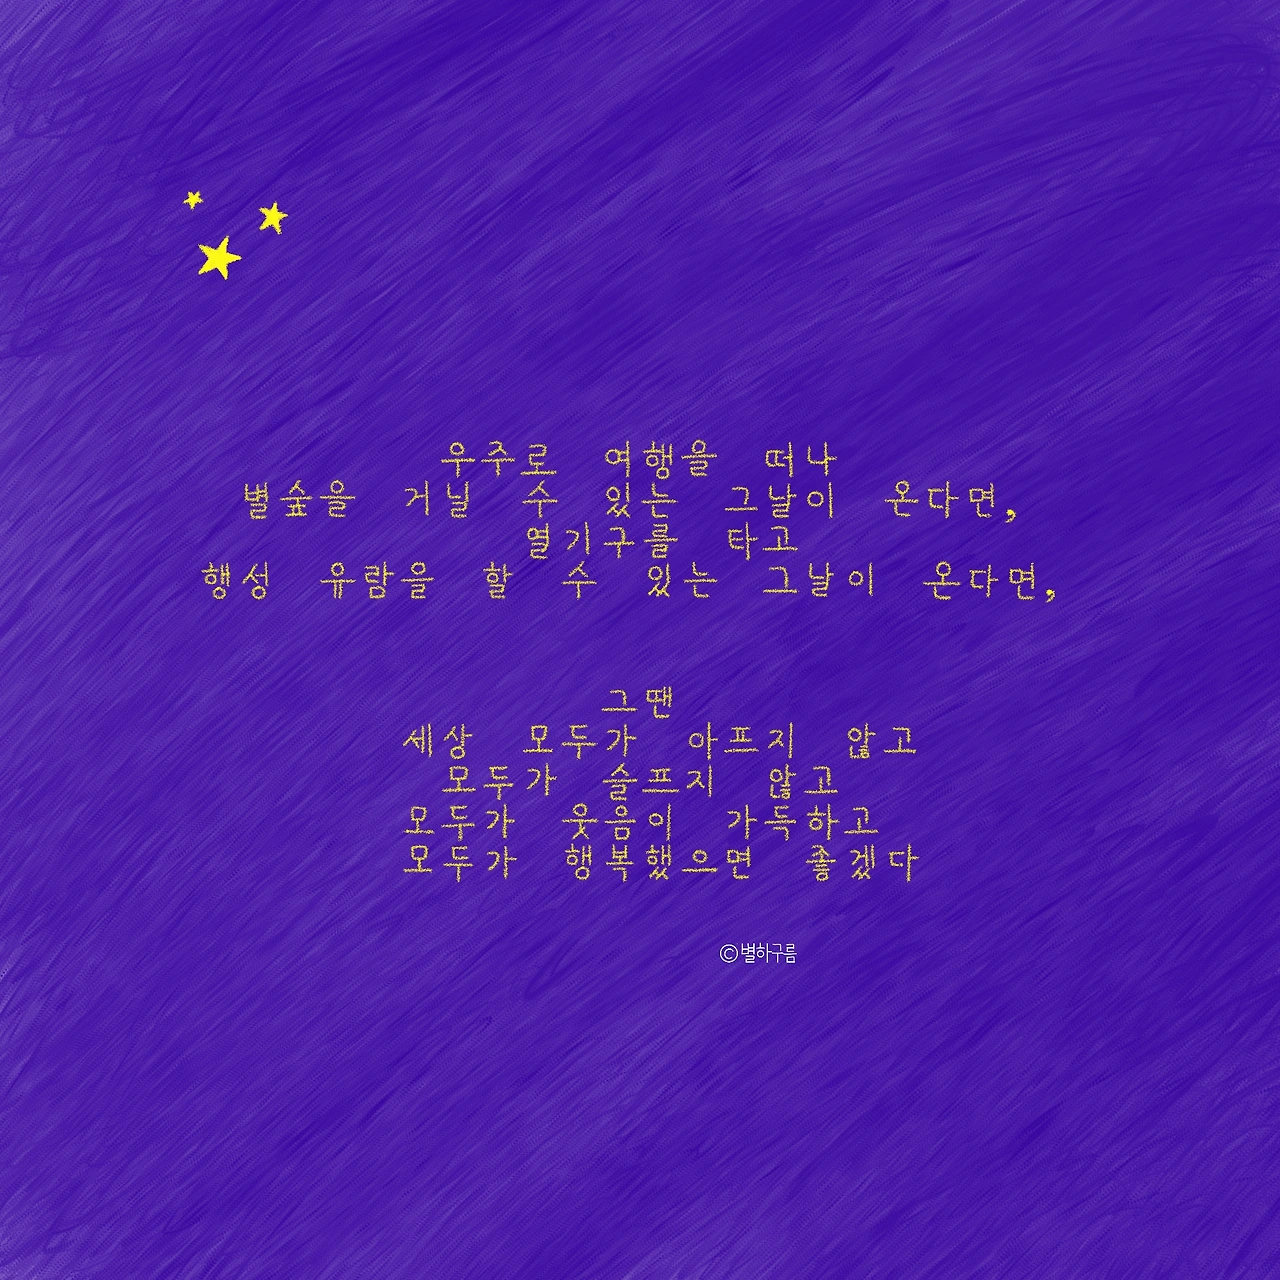 우주로 여행을 떠나
별숲을 거닐 수 있는 그날이 온다면,
열기구를 타고
행성 유람을 할 수 있는 그날이 온다면,
그땐
세상 모두가 아프지 않고
모두가 슬프지 않고
모두가 웃음이 가득하고
모두가 행복했으면 좋겠다
©별하구름